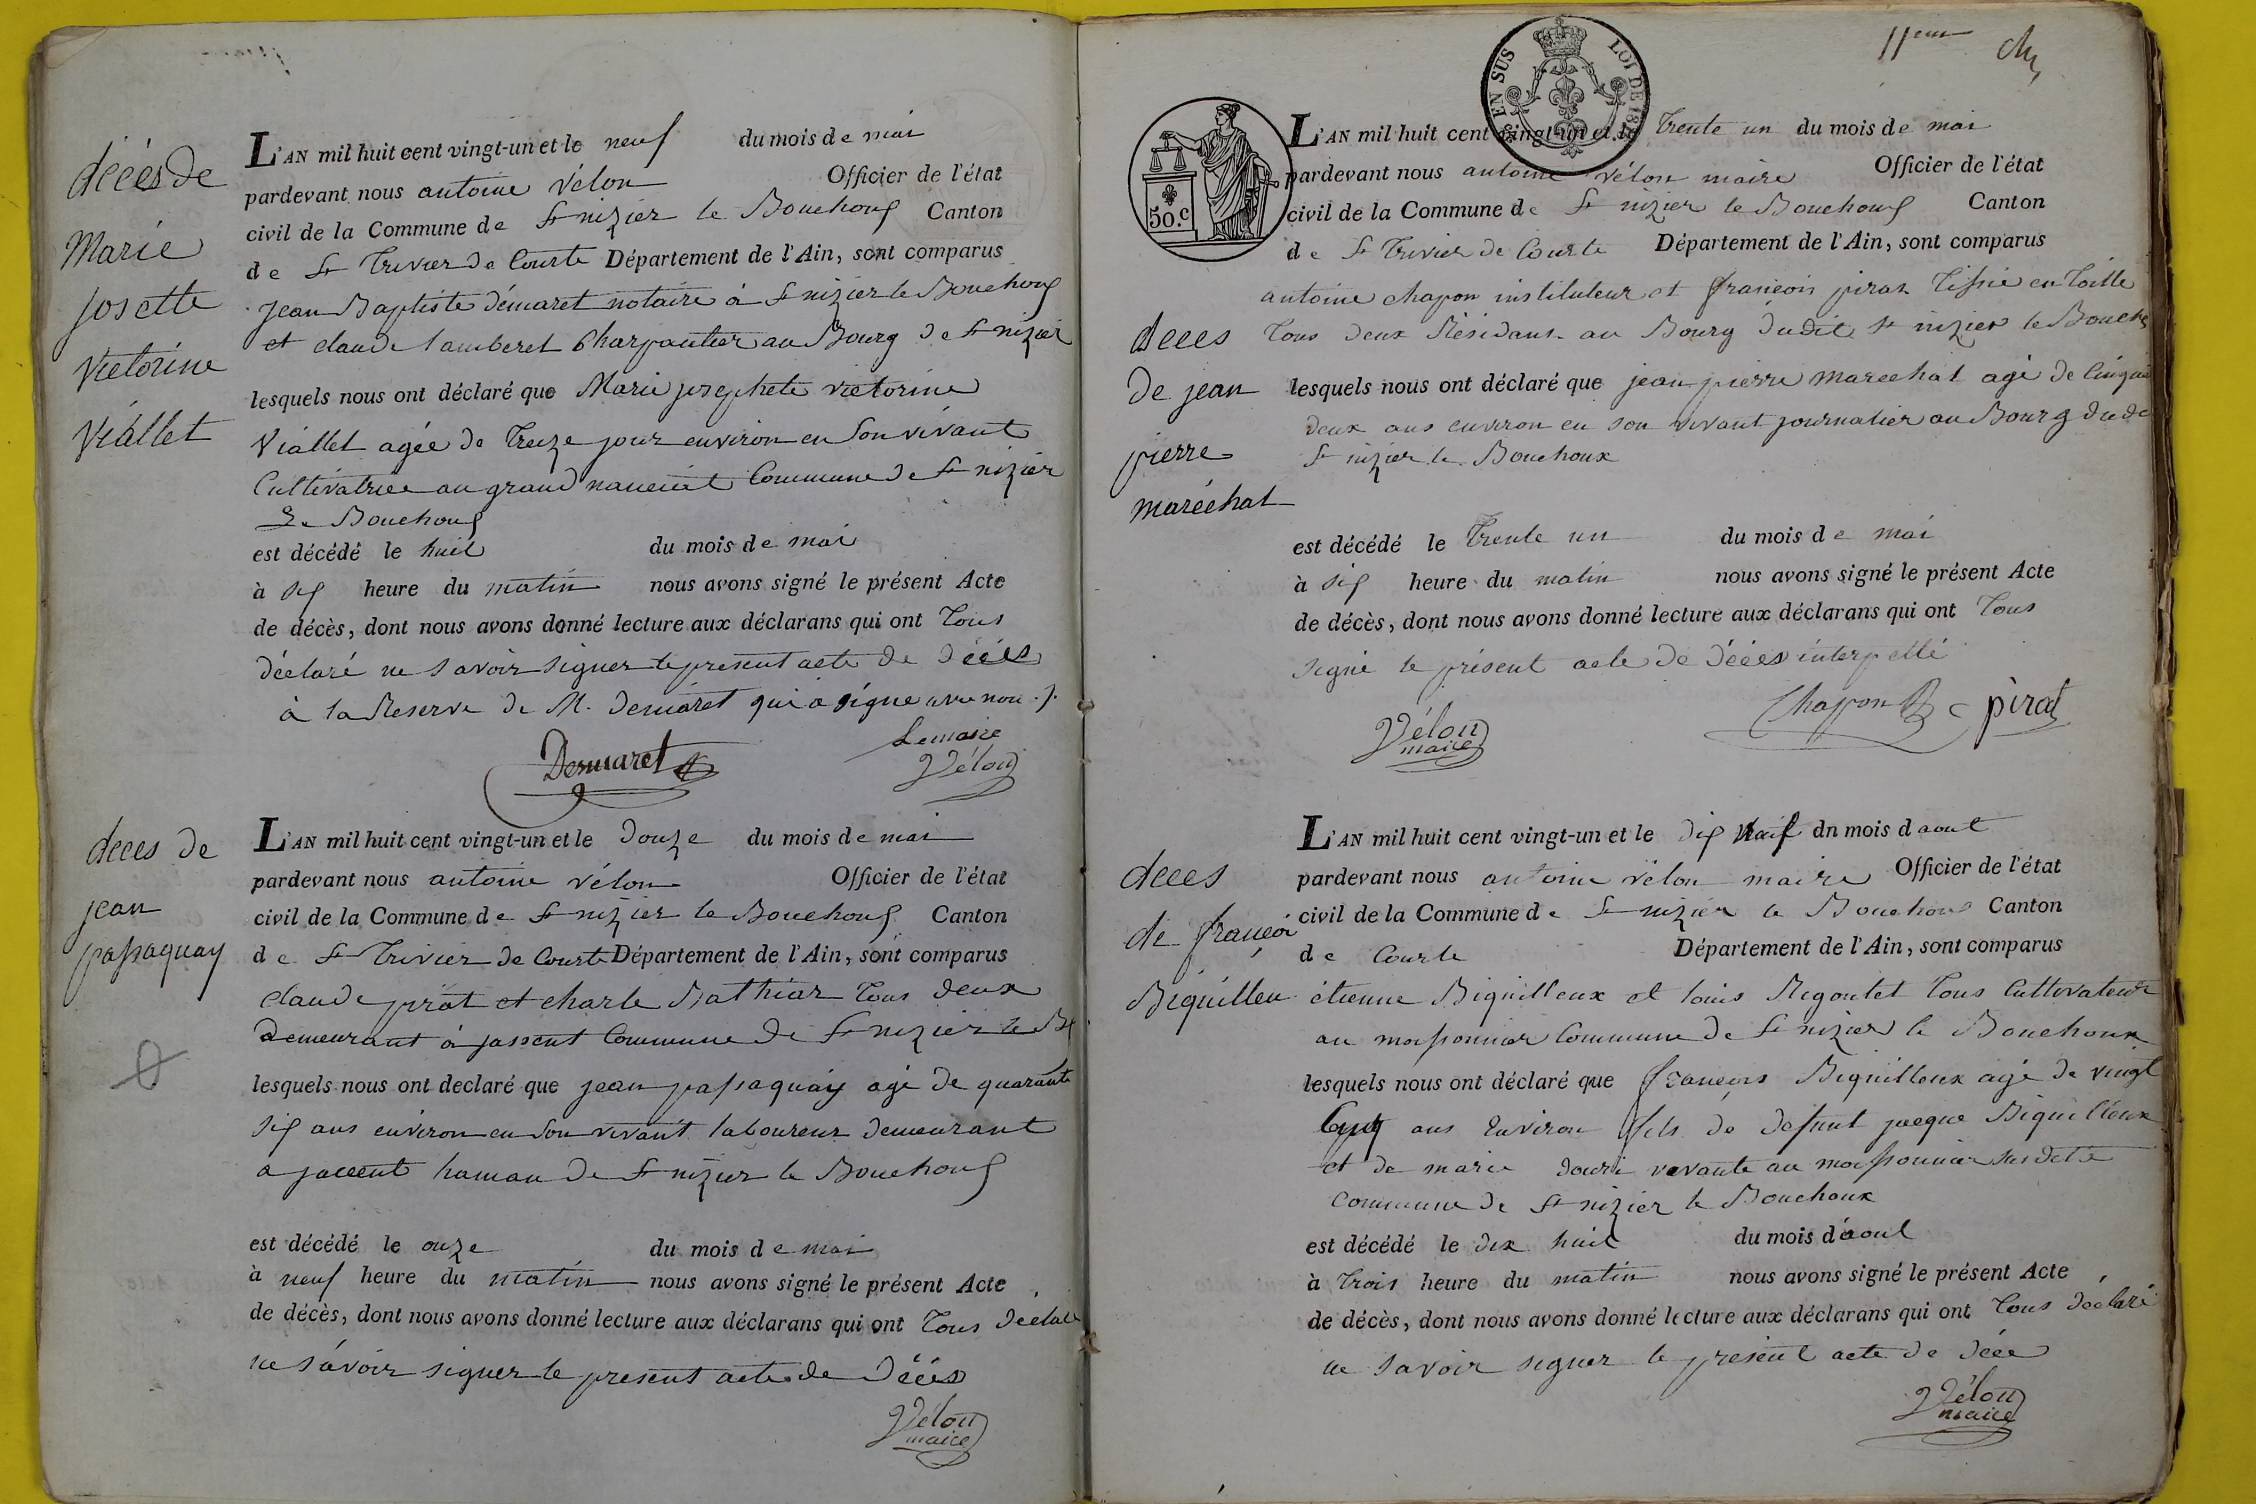 décès de
Marie
josette
victorine
viallet
L'AN mil huit cent vingt-un et le neuf du mois de mai
pardevant nous antoine vélon Officier de l'état
civil de la Commune de St nizier le Bouchoux Canton
de St Trivier de Courte Département de l'Ain, sont comparus
jean Baptiste démaret notaire à St nizier le Bouchoux
et claude lamberet Charpantier au Bourg de St nizier
lesquels nous ont déclaré que Marie josephete victorine
Viallet agée de Treize jour environ en Son vivant
Cultivatrice au grand Commune de St nizier
Le Bouchoux
est décédé le huit du mois de mai
à six heure du matin nous avons signé le présent Acte
de décès, dont nous avons donné lecture aux déclarans qui ont Tous
déclaré ne savoir signer le present acte de décès
à la Reserve de M. demaret qui a signé avec nous
Demaret
Lemaire
Vélon
deces de
jean
passaquay
L'AN mil huit cent vingt-un et le douze du mois de mai
pardevant nous antoine vélon Officier de l'état
civil de la Commune de St nizier le Bouchoux Canton
de St Trivier de Courte Département de l'Ain, sont comparus
claude prat et charle Mathiar Tous deux
demeurant à jassent Commune de St nizier le Bx
lesquels nous ont declaré que jean passaquay agé de quarante
six ans environ en Son vivant laboureur demeurant
a jaccent hamau de St nizier le Bouchoux
est décédé le onze du mois de mai
à neuf heure du matin nous avons signé le présent Acte
de décès, dont nous avons donné lecture aux déclarans qui ont Tous déclaré
ne savoir signer le present acte de décès
Vélon
maire
11eme
EN SUS LOI DE
50.c
L'AN mil huit cent vingt-un et le Trente un du mois de mai
pardevant nous antoine vélon maire Officier de l'état
civil de la Commune de St nizier le Bouchoux Canton
de St Trivier de Courte Département de l'Ain, sont comparus
antoine chapon instituteur et françois pirat Tissié en Toille
Tous deux Résidant au Bourg dudit St nizier le Bouch
deces
de jean
pierre
maréchal
lesquels nous ont déclaré que jean pierre marechal agé de Cinquante
deux ans environ en son vivant journalier au Bourg dudt
St nizier le Bouchoux
est décédé le Trente un du mois de mai
à six heure du matin nous avons signé le présent Acte
de décès, dont nous avons donné lecture aux déclarans qui ont Tous
signé le présent acte de décès interpellé
Vélon
maire
Chapon
pirat
deces
de françoi
Biquilleu
L'AN mil huit cent vingt-un et le dix dn mois d aout
pardevant nous antoine vélon maire Officier de l'état
civil de la Commune de St nizier le Bouchoux Canton
de Courte Département de l'Ain, sont comparus
étienne Biquilleux et louis Regoutet Tous Cultivateur
au moissonnier Commune de St nizier le Bouchoux
lesquels nous ont déclaré que françois Biquilleux agé de vingt
Cinq ans environ fils de defunt jacque Biquilleux
et de marie vivante au moissonnier susdette
commune de St nizier le Bouchoux
est décédé le dix huit du mois d'aout
à Trois heure du matin nous avons signé le présent Acte
de décès, dont nous avons donné lecture aux déclarans qui ont Tous déclaré
ne savoir signer le present acte de décé
Vélon
maire